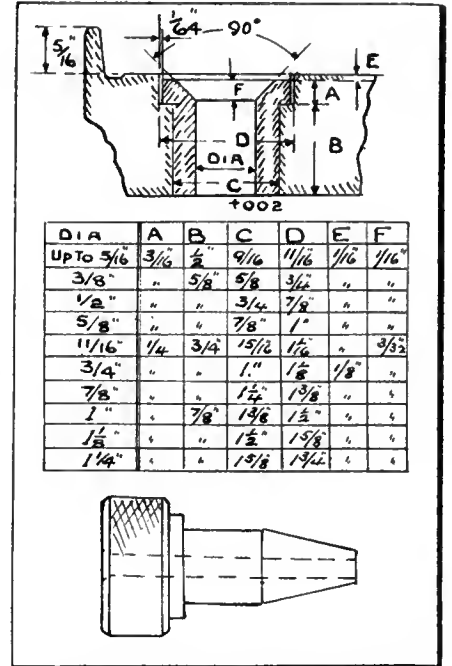 1/64" 90°
5/16"
E
F
A
D
B
DIA
C
+002
DIA A B C D E F
Up To 5/16" 3/16" 1/2" 9/16 11/16" 1/16" 1/16"
3/8" " 5/8" 5/8 3/4" " "
1/2" " " 3/4 7/8" " "
5/8" " " 7/8" 1" " "
11/16" 1/4 3/4" 15/16 1 1/16" " 3/32"
3/4" " " 1." 1 1/8 1/8" "
7/8" " " 1 1/4" 1 3/8" " "
1" " 7/8" 1 3/8 1 1/2" " "
1 1/8" " " 1 1/2" 1 5/8" " "
1 1/4" " " 1 5/8 1 3/4" " "